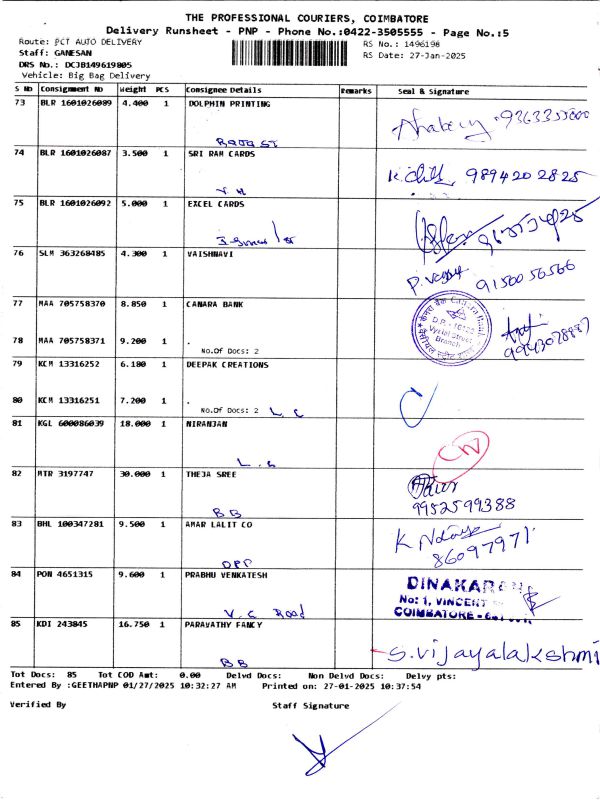 THE PROFESSIONAL COURIERS, COIMBATORE
Delivery Runsheet - PNP - Phone No.:0422-3505555 - Page No.:5
Route: PCT AUTO DELIVERY
RS No.: 1496198
Staff: GANESAN
RS Date: 27-Jan-2025
DRS No.: DCJB149619805
Vehicle: Big Bag Delivery
S No Consignment No Weight PCS Consignee Details Remarks Seal & Signature
73 BLR 1601026089 4.400 1 DOLPHIN PRINTING
9363355000
74 BLR 1601026087 3.500 1 SRI RAM CARDS
9894202825
75 BLR 1601026092 5.000 1 EXCEL CARDS
76 SLM 363268485 4.300 1 VAISHNAVI
9150056566
77 MAA 705758370 8.850 1 CANARA BANK
Vysial Street
Branch
78 MAA 705758371 9.200 1 .
No.Of Docs: 2
79 KCM 13316252 6.180 1 DEEPAK CREATIONS
80 KCM 13316251 7.200 1 .
No.Of Docs: 2 L.C
81 KGL 600086039 18.000 1 NIRANJAN
82 MTR 3197747 30.000 1 THEJA SREE
BB
9952599388
83 BHL 100347281 9.500 1 AMAR LALIT CO
OPP
84 PON 4651315 9.600 1 PRABHU VENKATESH
No: 1, VINCENT
COIMBATORE
V.C Road
85 KDI 243845 16.750 1 PARAVATHY FANCY
S.vijayalakshmi
BB
Tot Docs: 85 Tot COD Amt: 0.00 Delvd Docs: Non Delvd Docs: Delvy pts:
Entered By :GEETHAPNP 01/27/2025 10:32:27 AM Printed on: 27-01-2025 10:37:54
Verified By Staff Signature